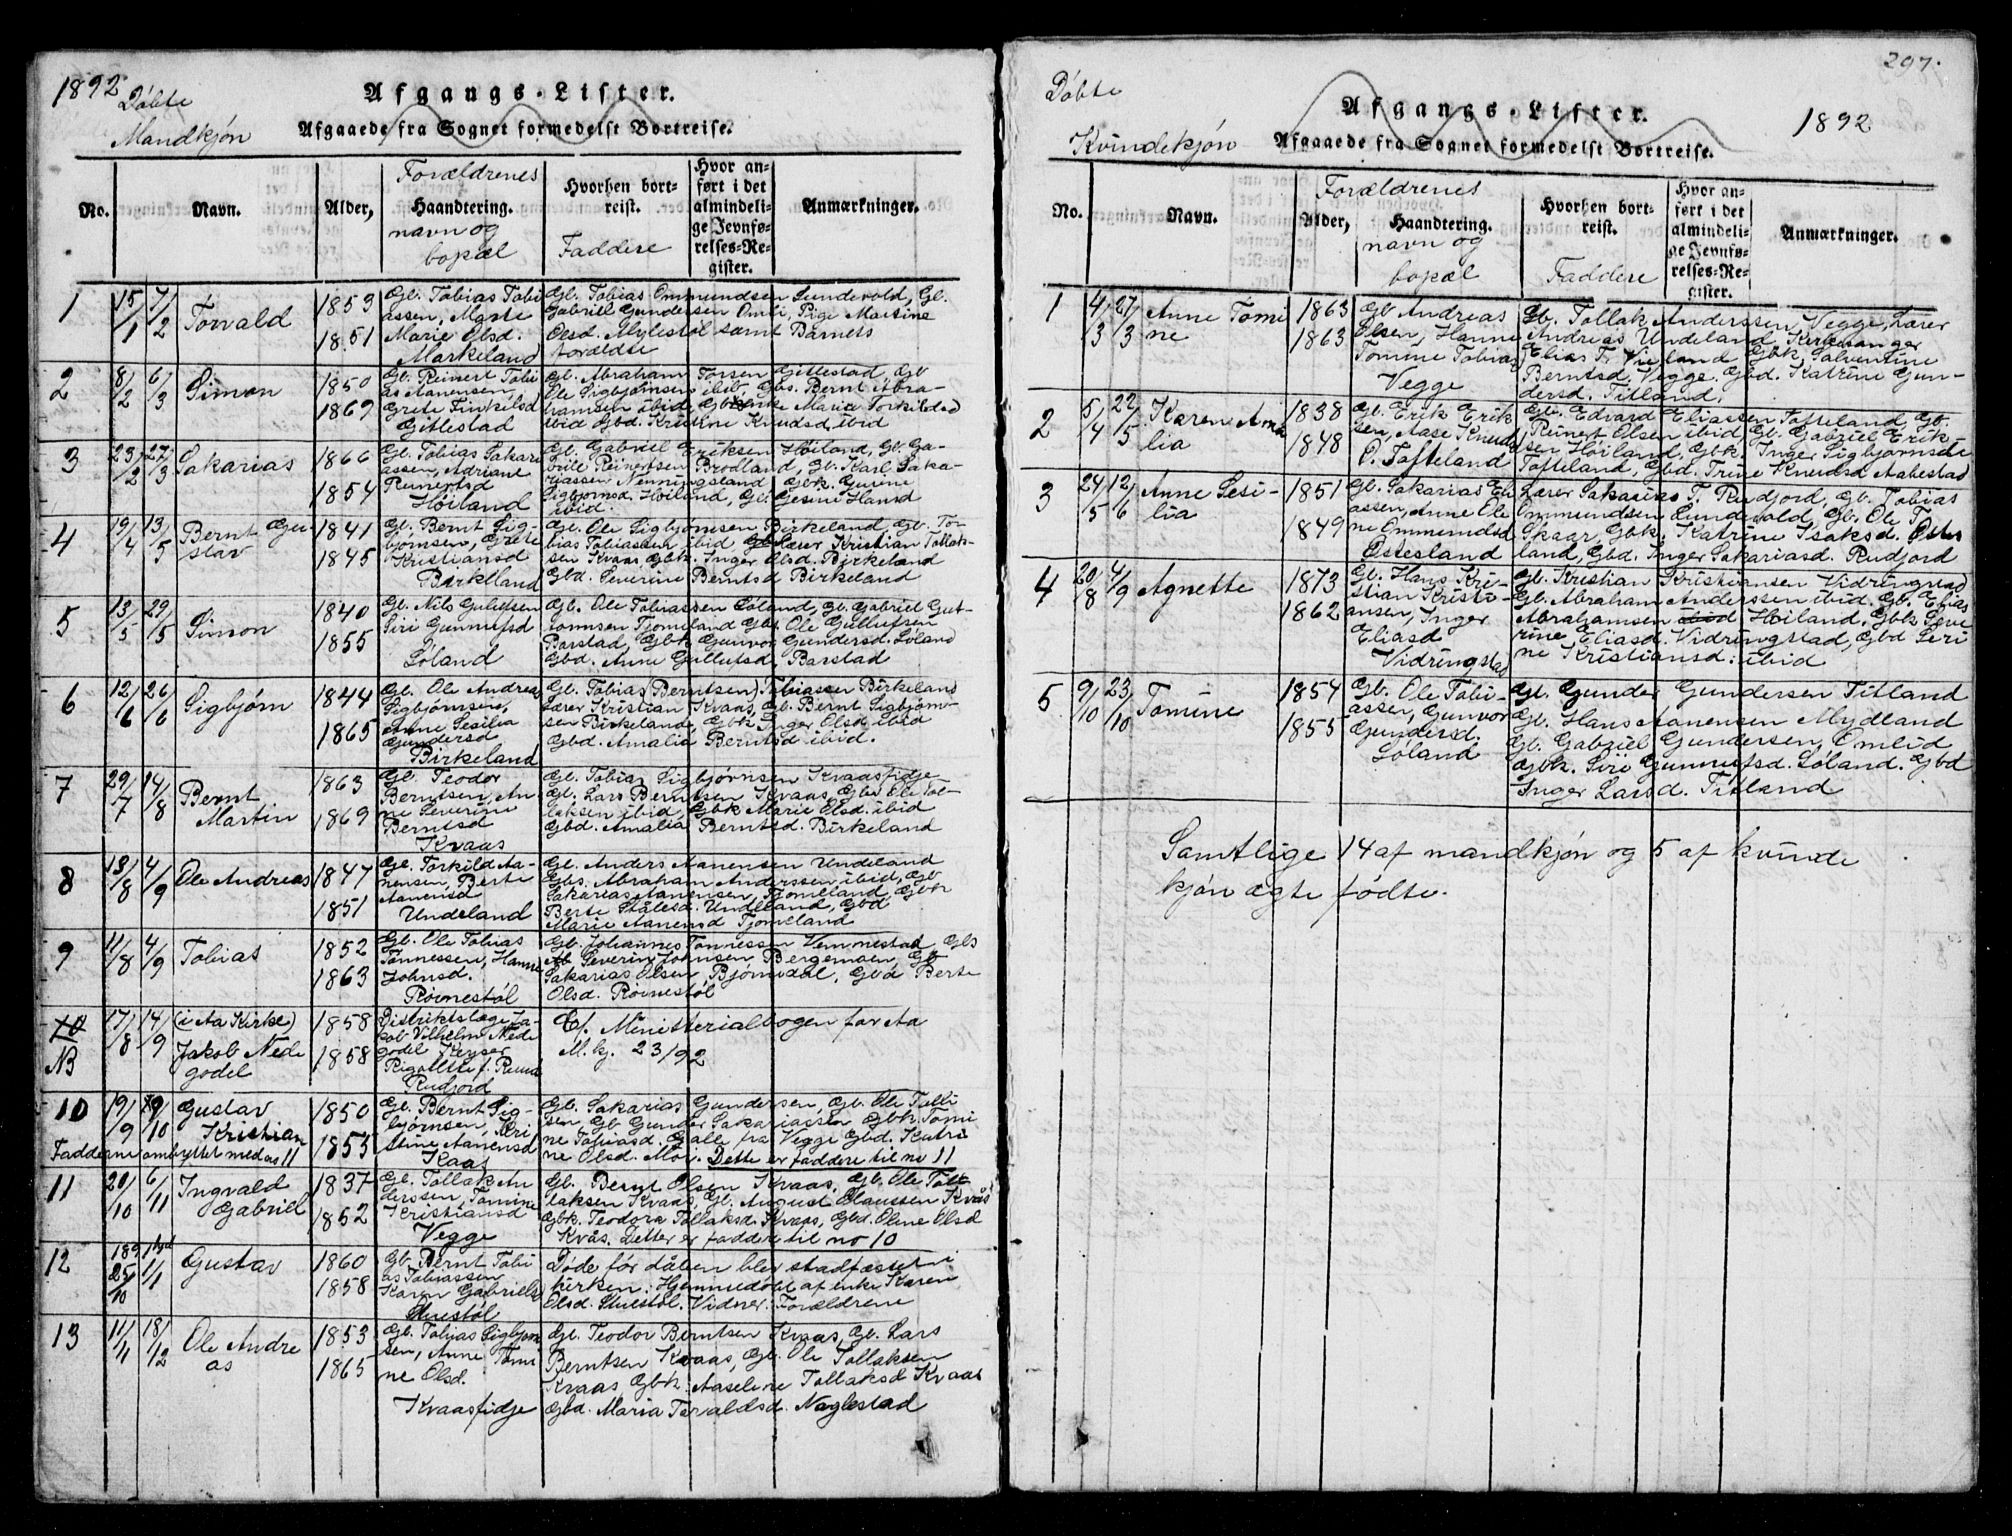 1892
Döbte
Mandkjøn
Afgangs-Lister.
Afgaaede fra Sognet formedelst Bortreise.
No.
Navn.
Alder,
Forældrenes
Haandtering.
navn og
bopæl
Hvorhen bort-
reist.
Faddere
Hvor an-
ført i det
almindeli-
ge Jevnfø-
relses-Re-
gister.
Anmærkninger.
1
15/1
7/2
Torvald
1853
1851
Gb. Tobias Tobi
assen, Marte
Marie Olsd.
Markeland
Gb. Tobias Ommundsen Lundevold, Gb.
Gabriel Gundersen Omli, Pige Martine
Olsd. Mylestøl samt Barnets
forældre
2
8/2
6/3
Simon
1850
1869
Gb. Reinert Tobi
as Aanensen,
Grete Tinkilsd
Gitlestad
Gb. Abraham Torsen Gitlestad, Gb
Ole Sigbjørnsen ibid, Gbs. Bernt Abra-
hamsen ibid, Gb enke Marie Torkildsd
ibid Gbd. Kristine Knudsd ibid
3
23/2
27/3
Sakarias
1866
1854
Gb. Tobias Sakari
assen, Adriane
Reinertsd
Höiland
Gb. Gabriel Eriksen Höiland, Gb. Ga-
briel Reinertsen Brödland, Gb. Karl Saka-
riassen Nenningsland Gbk. Gurine
Sigbjørnsd. Höiland, Gbd. Gesine Hansd
ibid.
4
19/4
13/5
Bernt Gu-
stav
1841
1845
Gb. Bernt Sig-
bjørnsen, Grete
Kristiansd
Birkeland
Gb. Ole Sigbjørnsen Birkeland, Gb. To-
bias Tobiassen ibid Lærer Kristian Tollak-
sen Kvaas Gbk. Inger Olsd. Birkeland
Gbd. Severine Berntsd Birkeland
5
13/5
29/5
Simon
1840
1855
Gb. Nils Gullufsen
Siri Gunnufsd
Löland
Gb. Ole Tobiassen Löland, Gb. Gabriel Gut-
tormsen Tjomeland Gbs. Ole Gullufsen
Barstad, Gbk Gunvor Gundersd. Löland
Gbd. Anne Gullufsd, Barstad
6
12/6
26/6
Sigbjørn
1844
1865
Gb. Ole Andreas
Sigbjørnsen,
Anne Secilia
Gundersd
Birkeland
Gb. Tobias (Berntsen) Tobiassen Birkeland
Lærer Kristian Kvaas, Gb. Bernt Sigbjørn-
sen Birkeland, Gbk Inger Olsd. ibid
Gbd. Amalia Berntsd ibid.
7
29/7
14/8
Bernt
Martin
1863
1869
Gb. Teodor
Berntsen, An
ne Severine
Berntsd
Kvaas
Gb. Tobias Sigbjørnsen Kvaasfidje
Gb. Lars Berntsen Kvaas, Gbs Ole Tol-
laksen ibid, Gbk Marie Olsd. ibid
Gbd. Amalia Berntsd. Birkeland
8
13/8
4/9
Ole Andreas
1847
1851
Gb. Torkild Aa-
nensen, Berte
Aanensd
Undeland
Gb. Anders Aanensen Undeland
Gbs. Abraham Anderssen ibid, Gb
Sakarias Aanensen, Tjomeland, Gbk
Berte Stålesd. Undeland, Gbd
Marie Aanensd Tjomeland
9
11/8
4/9
Tobias
1852
1863
Gb. Ole Tobias
Tønnessen, Hanne
Johnsd.
Röinestöl
Gb. Johannes Tönnessen Vemmestad, Gbs
Severin Johnsen Bergemoen, Gb
Sakarias Olsen Bjørnsdal, Gbd Berte
Olsd. Röinestöl
10
NB
17/8
14/9
(i Aa Kirke)
Jakob Nede
godel
1858
1858
Distriktslæge Ja-
cob Vilhelm Nede
godel Keyser
Rigaltte f. Rund
Rudjord
Cf. Ministerialbogen for Aa
M.kj. 23/92
10
19/9
9/10
Gustav
Kristian
1850
1853
Gb. Bernt Sig-
bjørnsen, Kri
stine Aanensd
Kaas
Gb. Sakarias Gundersen, Gb. Ole Tolli
sen, Gb Gunder Sakariassen Gbk Tomi
ne Tobiasd. alle fra Vegge Gbd. Katri
ne Olsd. Moi. Dette er faddere til no 11
Fadderne ombyttet med as 11
11
20/10
6/11
Ingvald
Gabriel
1837
1852
Gb. Tollak An
derssen, Tomine
Kristiansd
Vegge
Gb. Bernt Olsen Kvaas, Gb. Ole Toll
laksen Kvaas, Gb. August Olaussen Kvås
Gbk. Teodora Tollaksd. Kvaas, Gbd. Oline Olsd
Kvås. Dette er faddere til no 10
12
189
25/10
1/1
Gustav
1860
1858
Gb. Bernt Tobi
as Tobiassen
Karen Gabrielsd
Stuestöl
Döde før dåben blev stadfæstet i
kirken. Hjemmedöbt af enke Karen
Olsd. Stuestöl. Vidner: Forældrene
13
11/11
18/12
Ole Andre
as
1853
1865
Gb. Tobias Sigbjørn
sen, Anne Tomi
ne Olsd.
Kvaasfidje
Gb. Teodor Berntsen Kvaas, Gb. Lars
Berntsen Kvaas, Gb. Ole Tollaksen
Kvaas Gbk. Aaselene Tollaksd Kvaas
Gbd. Maria Torvaldsd. Noglestad
297.
Döbte
Kvindekjön
Afgangs-Lister.
Afgaaede fra Sognet formedelst Bortreise.
1892
No.
Navn.
Alder,
Forældrenes
Haandtering.
navn og
bopæl
Hvorhen bort-
reist.
Faddere
Hvor an-
ført i det
almindeli-
ge Jevnfø-
relses-Re-
gister.
Anmærkninger.
1
4/3
27/3
Anne Tomi
ne
1863
1863
Gb Andreas
Olsen, Hanne
Tomine Tobiasd
Vegge
Gb. Tollak Anderssen Vegge, Lærer
Andreas Undeland, Kirkesanger
Elias F. Vieland Gbk Salventine
Berntsd. Vegge. Gbd. Katrine Gun-
dersd. Titland.
2
5/4
22/5
Karen Ama
lia
1838
1848
Gb. Erik Erik
sen, Aase Knudsd
O. Tofteland
Gb. Edvard Eliassen Tofteland, Gb.
Reinert Olsen ibid, Gb. Gabriel Erik-
sen Höiland, Gbk. Inger Sigbjørnsde
Tofteland, Gbd. Trine Knudsd Aabestad
3
24/5
12/6
Anne Sesi-
lia
1851
1849
Gb. Sakarias Eli
assen, Anne Oli
ne Ommundsd
Östesland
Lærer Sakarias T. Rudjord, Gb. Tobias
Ommundsen Lundevold, Gb. Ole T.
Skaar, Gbk. Katrine Isaksd. Östes
land, Gbd. Inger Sakariasd. Rudjord
4
20/8
4/9
Agnette
1873
1862
Gb. Hans Kri-
stian Kristi-
ansen, Inger
Eliasd
Vidringstad
Gb. Kristian Kristiansen Vidringstad
Gb. Abraham Anderssen ibid. Gb. Elias
Abrahamsen ibid Höiland, Gbk Seve
rine Eliasd. Vidringstad, Gbd Seri
ne Kristiansd. ibid
5
9/10
23/10
Tomine
1854
1855
Gb. Ole Tobi-
assen, Gunvor
Gundersd.
Löland
Gb. Gunder Gundersen Titland
Gb. Hans Aanensen Mydland
Gb. Gabriel Gundersen, Omlid
Gbk. Siri Gunnufsd. Löland. Gbd
Inger Larsd. Titland
Samtlige 14 af mandkjön og 5 af kvinde
kjön ægte födte.